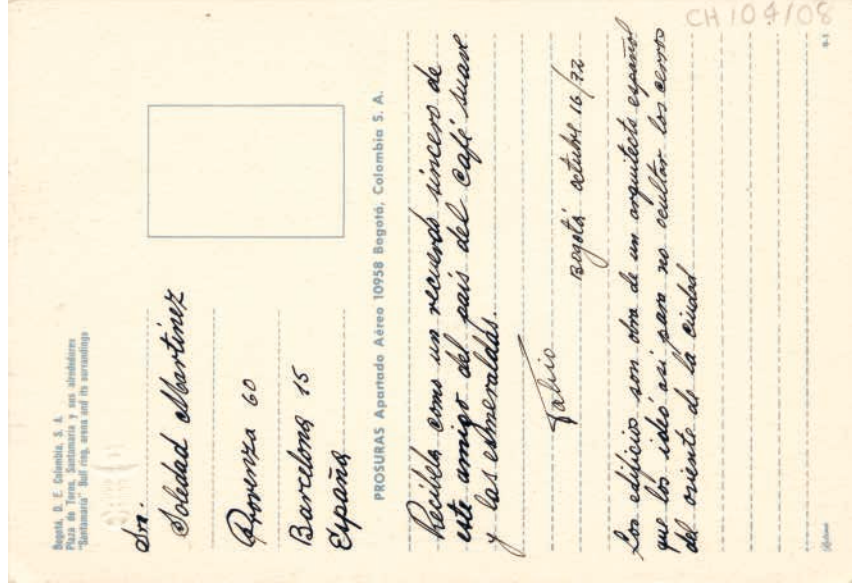 CH 109/08
Bogotá, D. E. Colombia, S. A.
Plaza de Toros, Santamaria y sus alrededores
"Santamaria" Bull ring, arena and its surrandings
Sra.
Soledad Martinez
Provenza 60
Barcelona 15
España
PROSURAS Apartado Aéreo 10958 Bogotá, Colombia S. A.
Recibela como un recuerdo sincero de
este amigo del pais del café suave
y las esmeraldas.
Fabio
Bogotá octubre 16/72
Los edificios son obra de un arquitecto español
que los ideó asi para no ocultar los cerros
del oriente de la ciudad